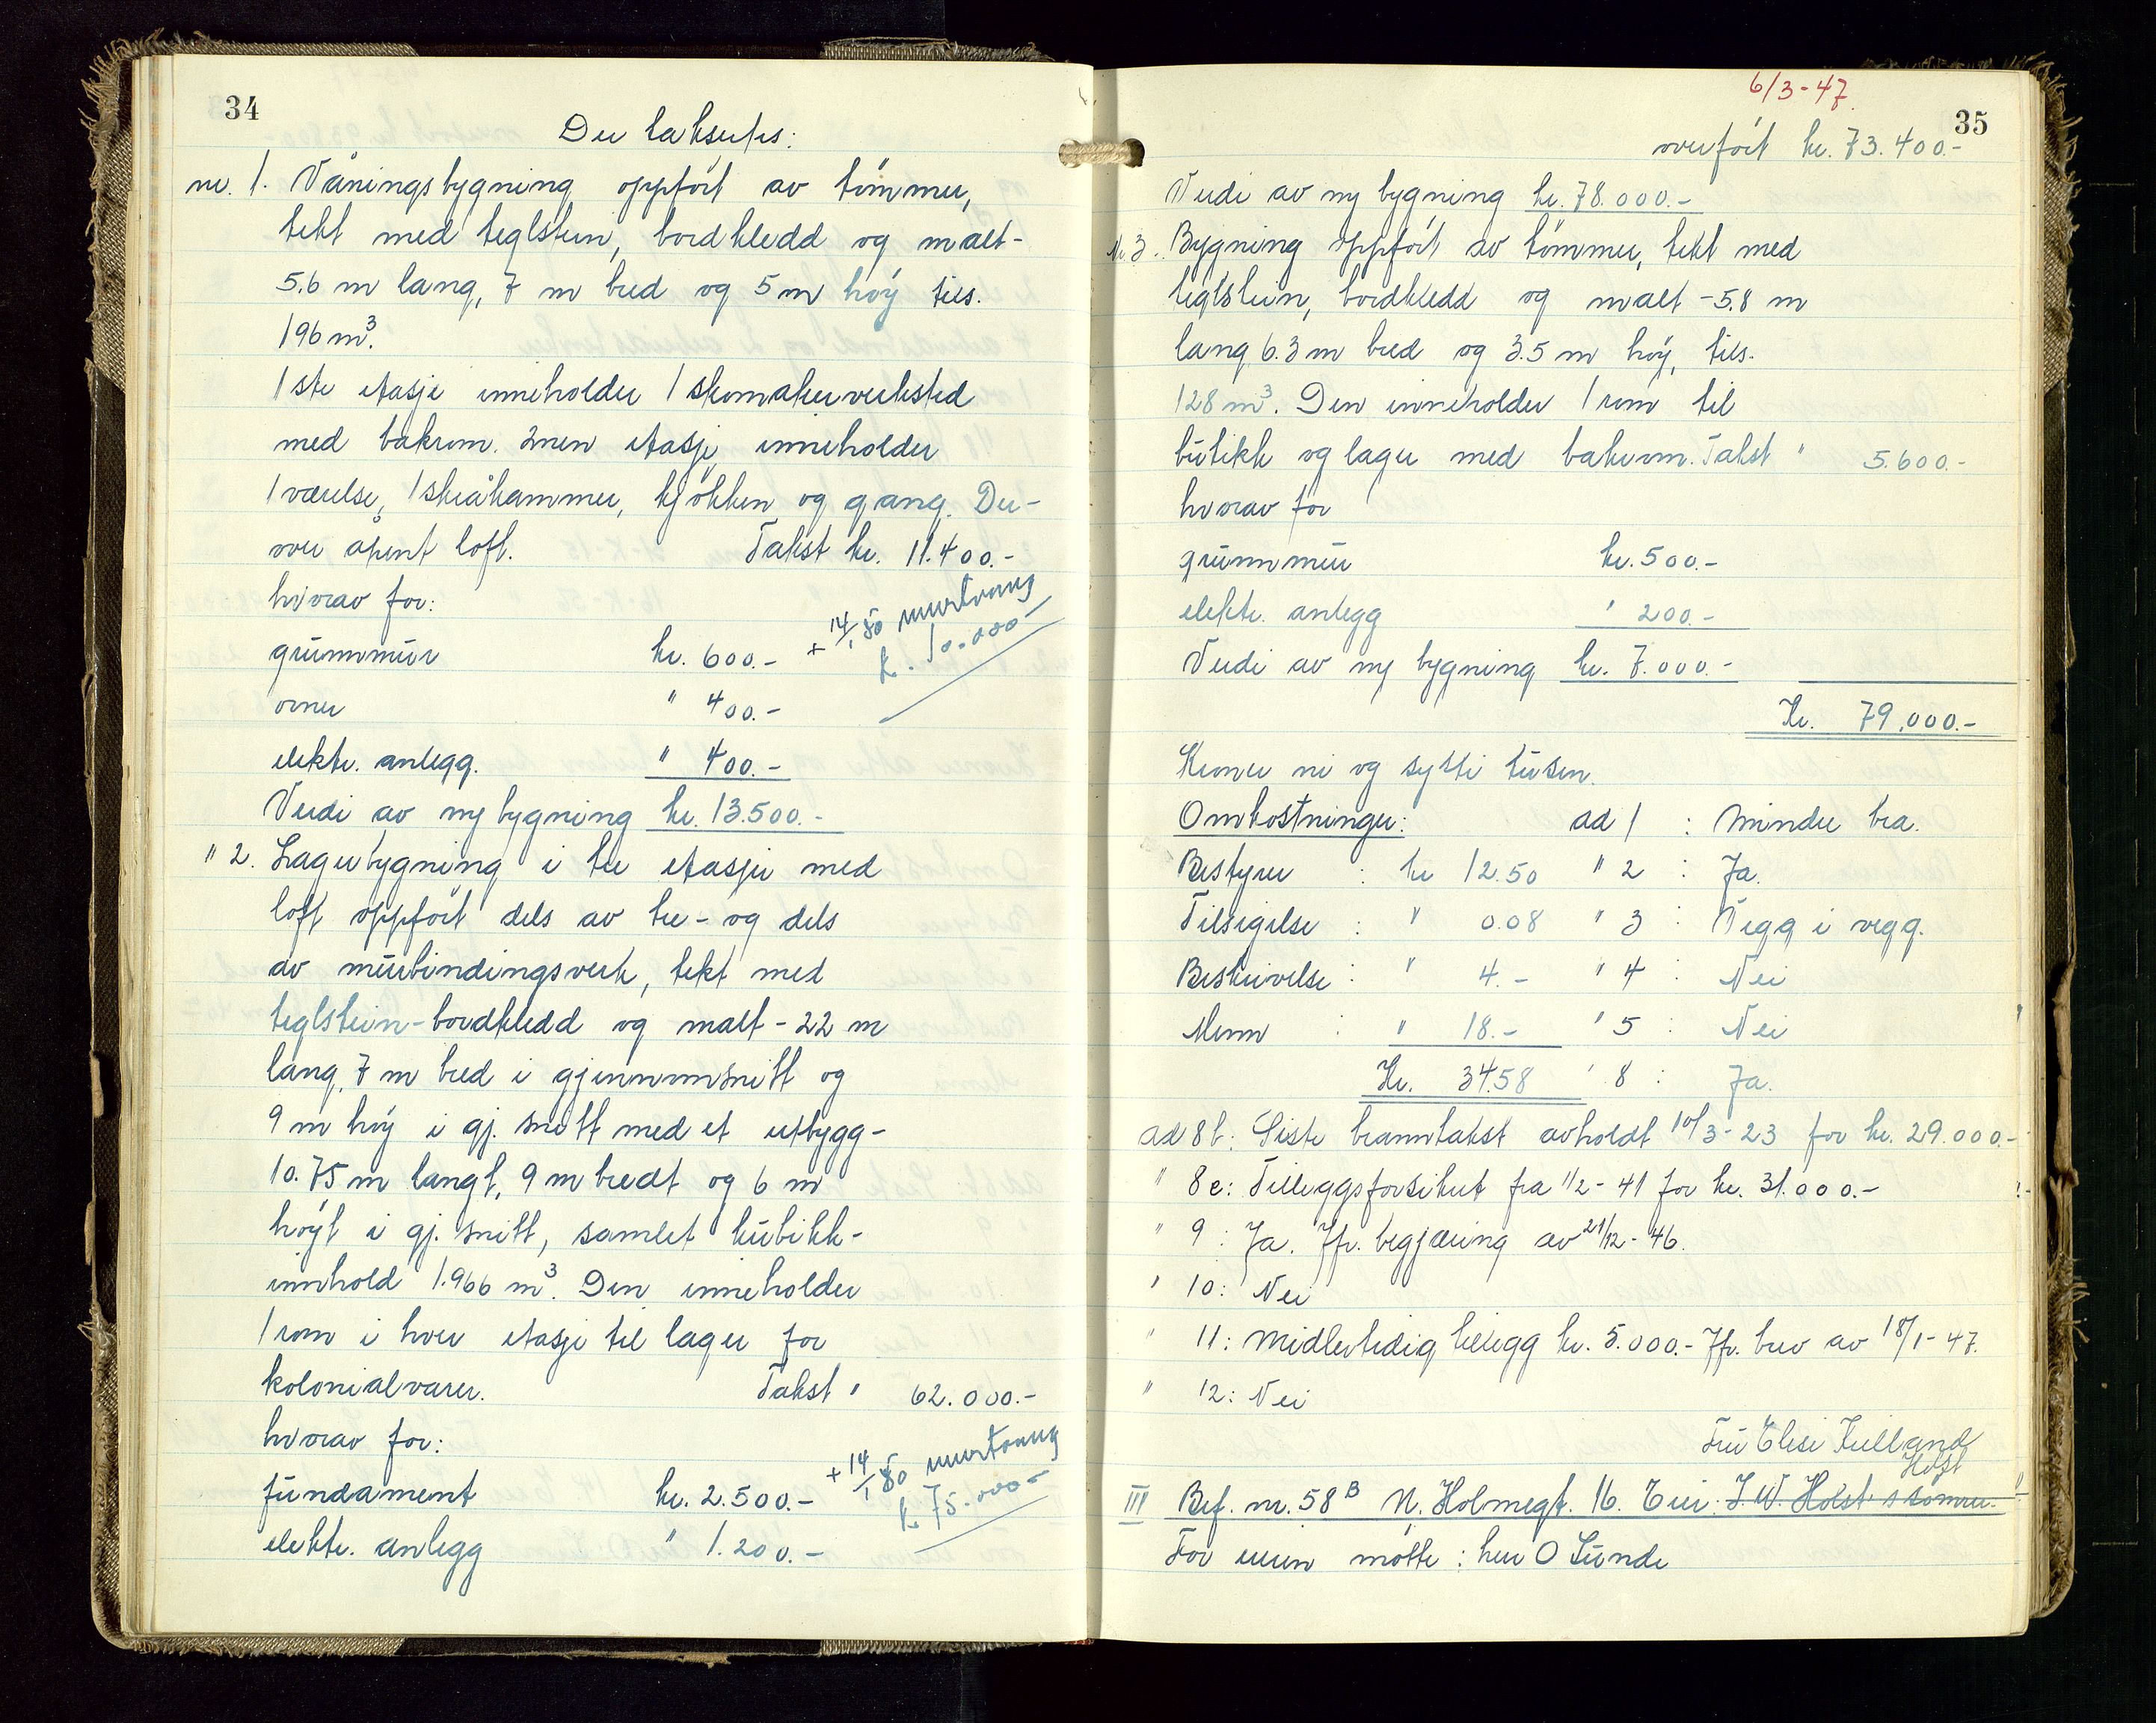 34
Der taksertes:
nr. 1. Våningsbygning oppført av tømmer,
tekt med teglstein, bordkledd og malt-
5.6 m lang, 7 m bred og 5 m høy tils.
196 m³.
1ste etasje inneholder 1 skomakerverksted
med bakrom. 2nen etasje inneholder
1 værelse, 1 skråkammer, kjøkken og gang. Der-
over åpent loft. Takst kr. 11.400.-
hvorav for:
+ 14/1 50 murtvang
k. 10.000-
grunnmur kr. 600.-
ovner " 400.-
elektr. anlegg. " 400.-
Verdi av ny bygning kr. 13.500.-
" 2. Lagerbygning i tre etasjer med
loft oppført dels av tre- og dels
av murbindingsverk, tekt med
teglstein-bordkledd og malt - 22 m
lang, 7 m bred i gjennomsnitt og
9 m høy i gj. snitt med et utbygg-
10.75 m langt, 9 m bredt og 6 m
høyt i gj. snitt, samlet kubikk-
innhold 1.966 m³. Den inneholder
1 rom i hver etasje til lager for
kolonialvarer. Takst " 62.000.-
hvorav for:
+ 14/1 50 murtvang
k. 75.000-
fundament kr. 2.500.-
elektr. anlegg " 1.200.-
6/3-47.
35
overført kr. 73.400.-
Verdi av ny bygning kr. 78.000.-
Nr 3. Bygning oppført av tømmer, tekt med
teglstein, bordkledd og malt - 5.8 m
lang 6.3 m bred og 3.5 m høy, tils.
128 m³. Den inneholder 1 rom til
butikk og lager med bakrom. Takst " 5.600.-
hvorav for
grunnmur kr. 500.-
elektr. anlegg " 200.-
Verdi av ny bygning kr. 7.000.-
Kr. 79.000.-
Kroner ni og sytti tusen.
Omkostninger: ad 1 : Mindre bra.
Bestyrer : kr 12.50 " 2 : Ja.
Tilsigelse : " 0.08 " 3 : Vegg i vegg.
Beskrivelse : " 4.- " 4 : Nei
Menn : " 18.- " 5 : Nei
Kr. 34.58 " 8 : Ja.
ad 8 b: Siste branntakst avholdt 10/3-23 for kr. 29.000.-
" 8 c: Tilleggsforsikret fra 1/2-41 for kr. 31.000.-
" 9 : Ja. Jfr. begjæring av 21/12-46.
" 10: Nei
" 11: Midlertidig tillegg kr. 5.000.- Jfr. brev av 18/1-47.
" 12: Nei
Fru Elise Kielland
Holst
III Brf. nr. 58 B N. Holmegt. 16. Eier: J. W. Holst's sønner.
For eieren møtte: herr O Sunde